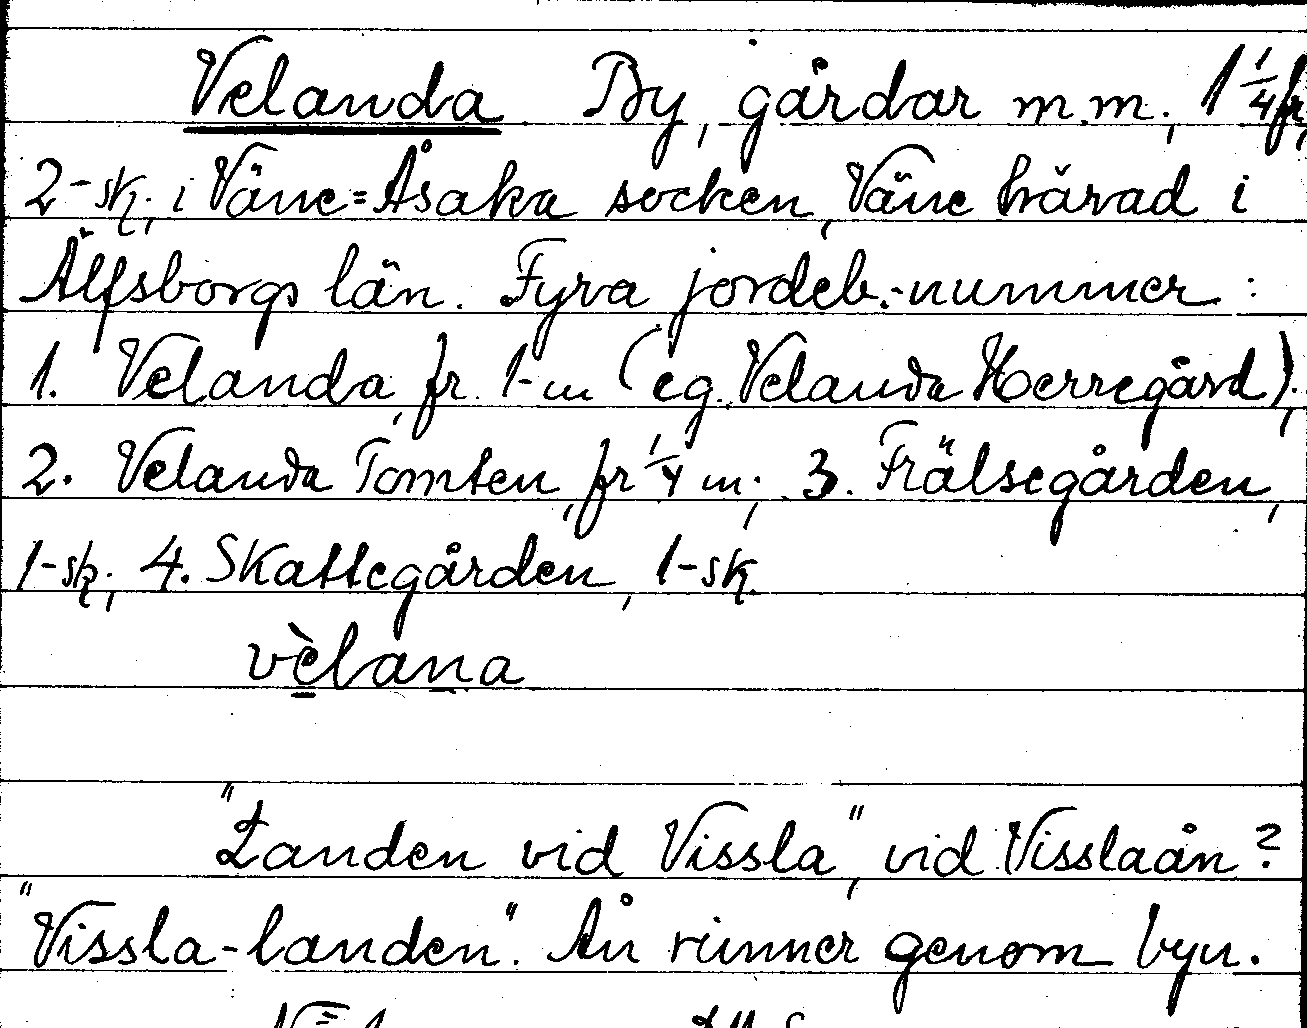 Velanda. By, gårdar m.m., 1 1/4 fr,
2-sk., i Väne=Åsaka socken, Väne härad i
Älfsborgs län. Fyra jordeb.-nummer:
1. Velanda, fr. 1-m (eg. Velanda Herregård);
2. Velanda Tomten, fr 1/4 m; 3. Frälsegården,
1-sk; 4. Skattegården, 1-sk.
vèlana
"Landen vid Vissla", vid Visslaån?
"Vissla-landen". Ån rinner genom byn.